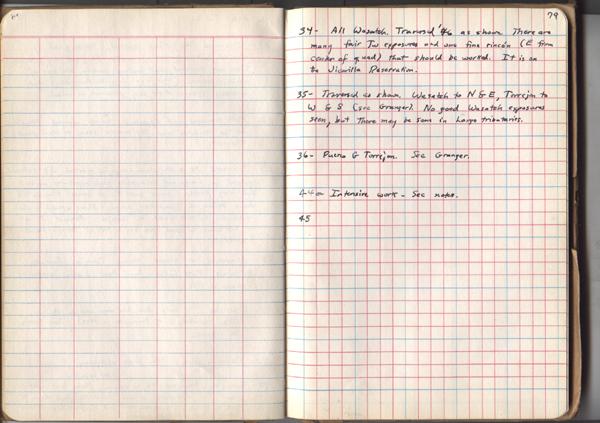 79
34- All Wasatch. Traversed '46 as shown. There are
many fair Tw exposures and one fine rincón (E from
center of quad) that should be worked. It is on
the Jicarilla Reservation.
35- Traversed as shown. Wasatch to N & E, Torrejon to
W & S (see Granger). No good Wasatch exposures
seen, but there may be some in Largo tributaries.
36- Puerco & Torrejon. See Granger.
44- Intensive work - See notes.
45